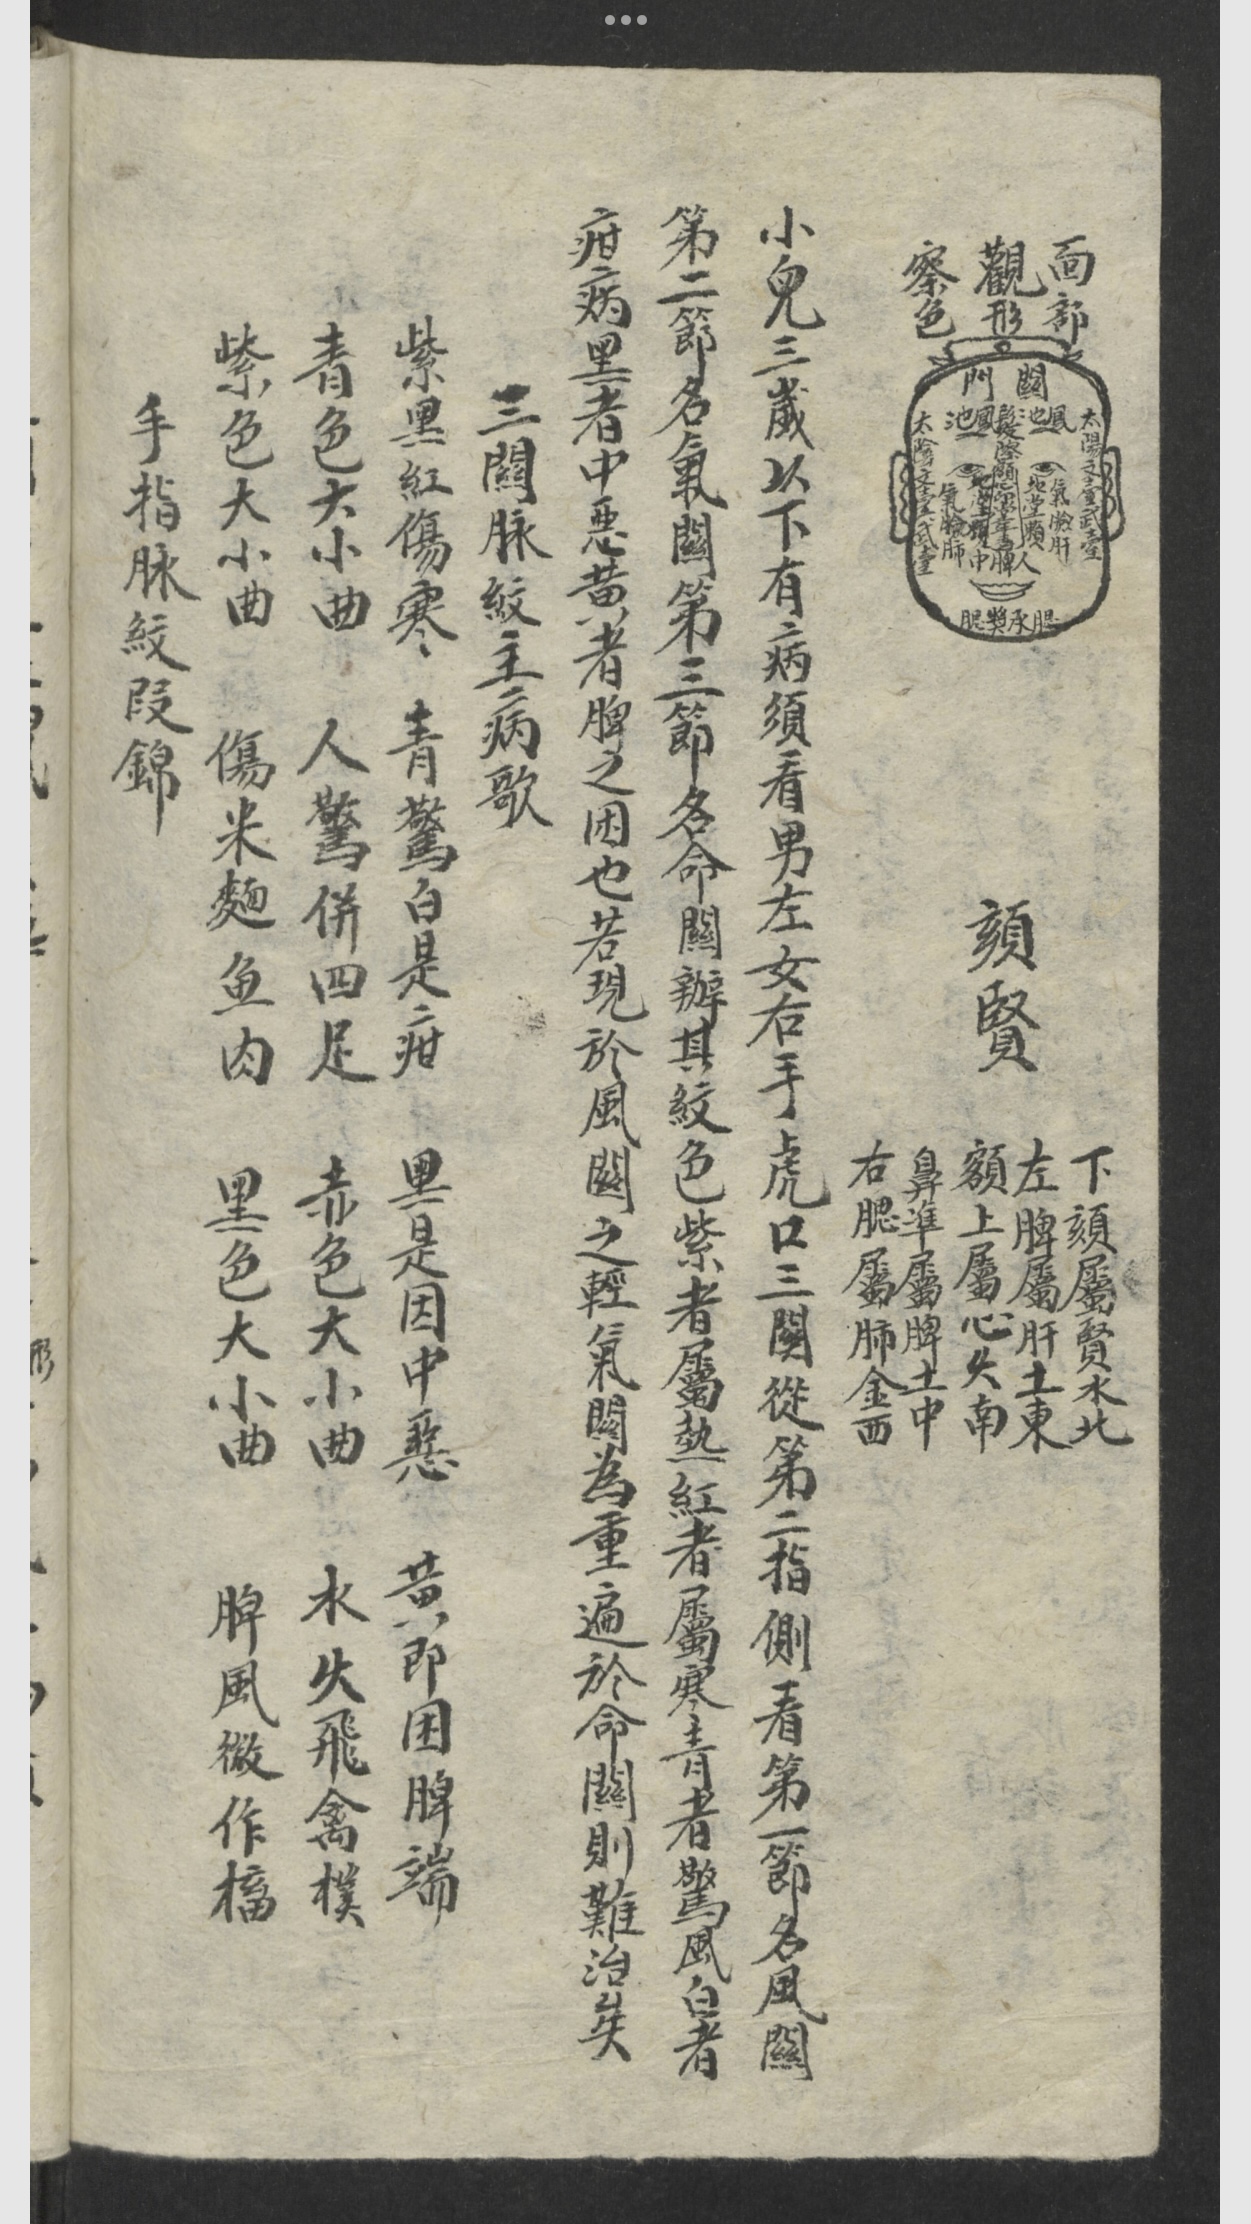 面部
觀形
察色
關門
鳳池
鳳池
太陽文臺武臺
太陰文臺武臺
氣臉肝
氣臉肺
人中
腮承漿腮
頦賢
下頦屬賢水北
左脾屬肝土東
額上屬心火南
鼻準屬脾土中
右腮屬肺金西
小兒三歲以下有病須看男左女右手虎口三關從第二指側看第一節名風關
第二節名氣關第三節名命關辦其紋色紫者屬熱紅者屬寒青者驚風白者
疳病黑者中惡黃者脾之困也若現於風關之輕氣關為重遍於命關則難治矣
三關脉紋主病歌
紫黑紅傷寒 青驚白是疳 黑是因中惡 黃即困脾端
青色大小曲 人驚併四足 赤色大小曲 水火飛禽樸
紫色大小曲 傷米麵魚肉 黑色大小曲 脾風微作搐
手指脉紋叚錦